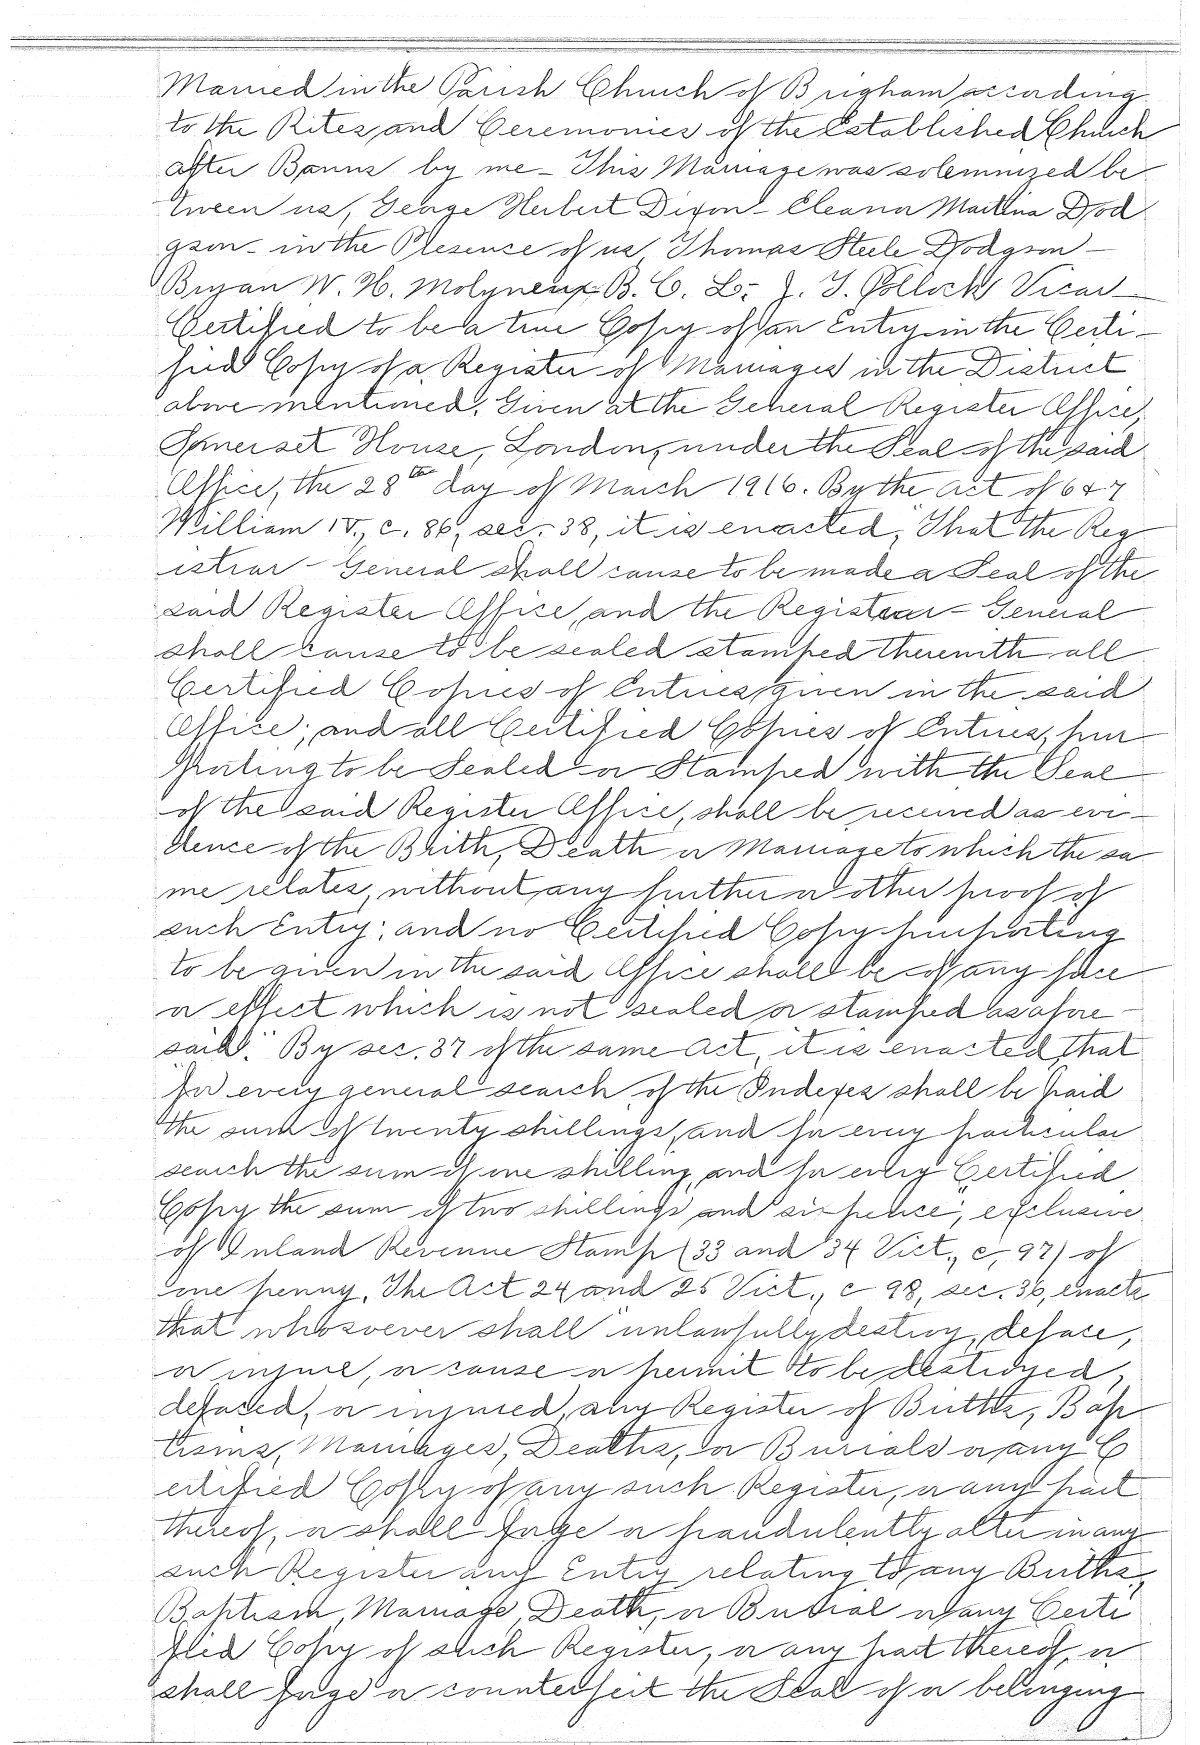 Married in the Parish Church of Brigham according
to the Rites and Ceremonies of the Established Church
after Banns by me - This Marriage was solemnized be
tween us, George Herbert Dixon - Eleanor Martina Dod
gson - in the Presence of us, Thomas Steele Dodgson -
Bryan W. H. Molyneux B. C. L. - J. T. Pollock Vicar -
Certified to be a true Copy of an Entry in the Certi-
fied Copy of a Register of Marriages in the District
above mentioned. Given at the General Register Office,
Somerset House, London, under the Seal of the said
Office, the 28th day of March 1916. By the Act of 6 & 7
William IV., c. 86, sec. 38, it is enacted, "That the Reg
istrar - General shall cause to be made a Seal of the
said Register Office, and the Registrar - General
shall cause to be sealed stamped therewith all
Certified Copies of Entries given in the said
Office; and all Certified Copies of Entries, pur
porting to be Sealed or Stamped with the Seal
of the said Register Office, shall be received as evi-
dence of the Birth, Death or Marriage to which the sa
me relates, without any further or other proof of
such Entry; and no Certified Copy purporting
to be given in the said Office shall be of any force
or effect which is not sealed or stamped as afore -
said." By sec. 37 of the same Act, it is enacted, that
"for every general search of the Indexes shall be paid
the sum of twenty shillings, and for every particular
search the sum of one shilling, and for every Certified
Copy the sum of two shillings and sixpence", exclusive
of Inland Revenue Stamp (33 and 34 Vict., c. 97) of
one penny. The Act 24 and 25 Vict., c 98, sec. 36, enacts
that whosoever shall "unlawfully destroy, deface,
or injure, or cause or permit to be destroyed,
defaced, or injured, any Register of Births, Bap
tisms, Marriages, Deaths, or Burials or any C
ertified Copy of any such Register, or any part
thereof, or shall forge or fraudulently alter in any
such Register any Entry relating to any Births,
Baptism, Marriage, Death, or Burial or any Certi
fied Copy of such Register, or any part thereof, or
shall forge or counterfeit the Seal of or belonging